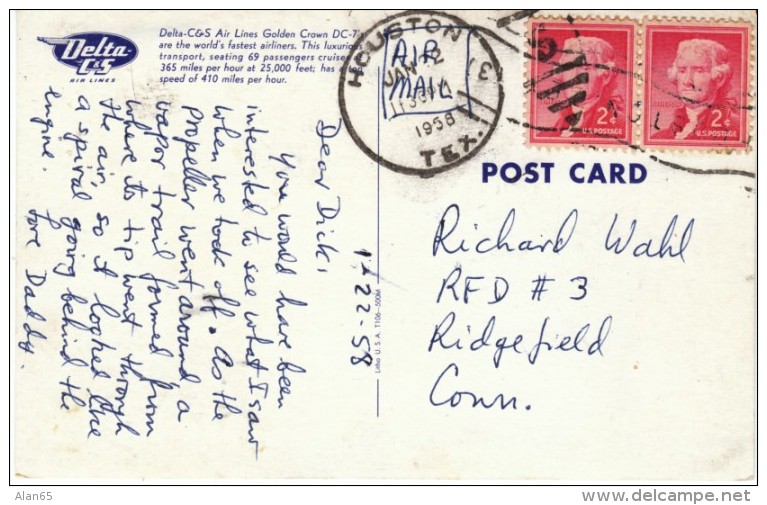 Delta
C&S
AIR LINES
Delta-C&S Air Lines Golden Crown DC-7's
are the world's fastest airliners. This luxurious
transport, seating 69 passengers cruises
365 miles per hour at 25,000 feet; has a
speed of 410 miles per hour.
HOUSTON
3
AIR
MAIL
JAN 2
1958
TEX.
2¢
U.S. POSTAGE
2¢
U.S. POSTAGE
POST CARD
1-22-58
Dear Dick,
You would have been
interested to see what I saw
when we took off. As the
propeller went around a
vapor trail formed from
where its tip went through
the air, so it looked like
a spiral going behind the
engine.
Love Daddy.
Litho U.S.A. T106-500M
Richard Wahl
RFD # 3
Ridgefield
Conn.
Alan65
http://www.delcampe.net